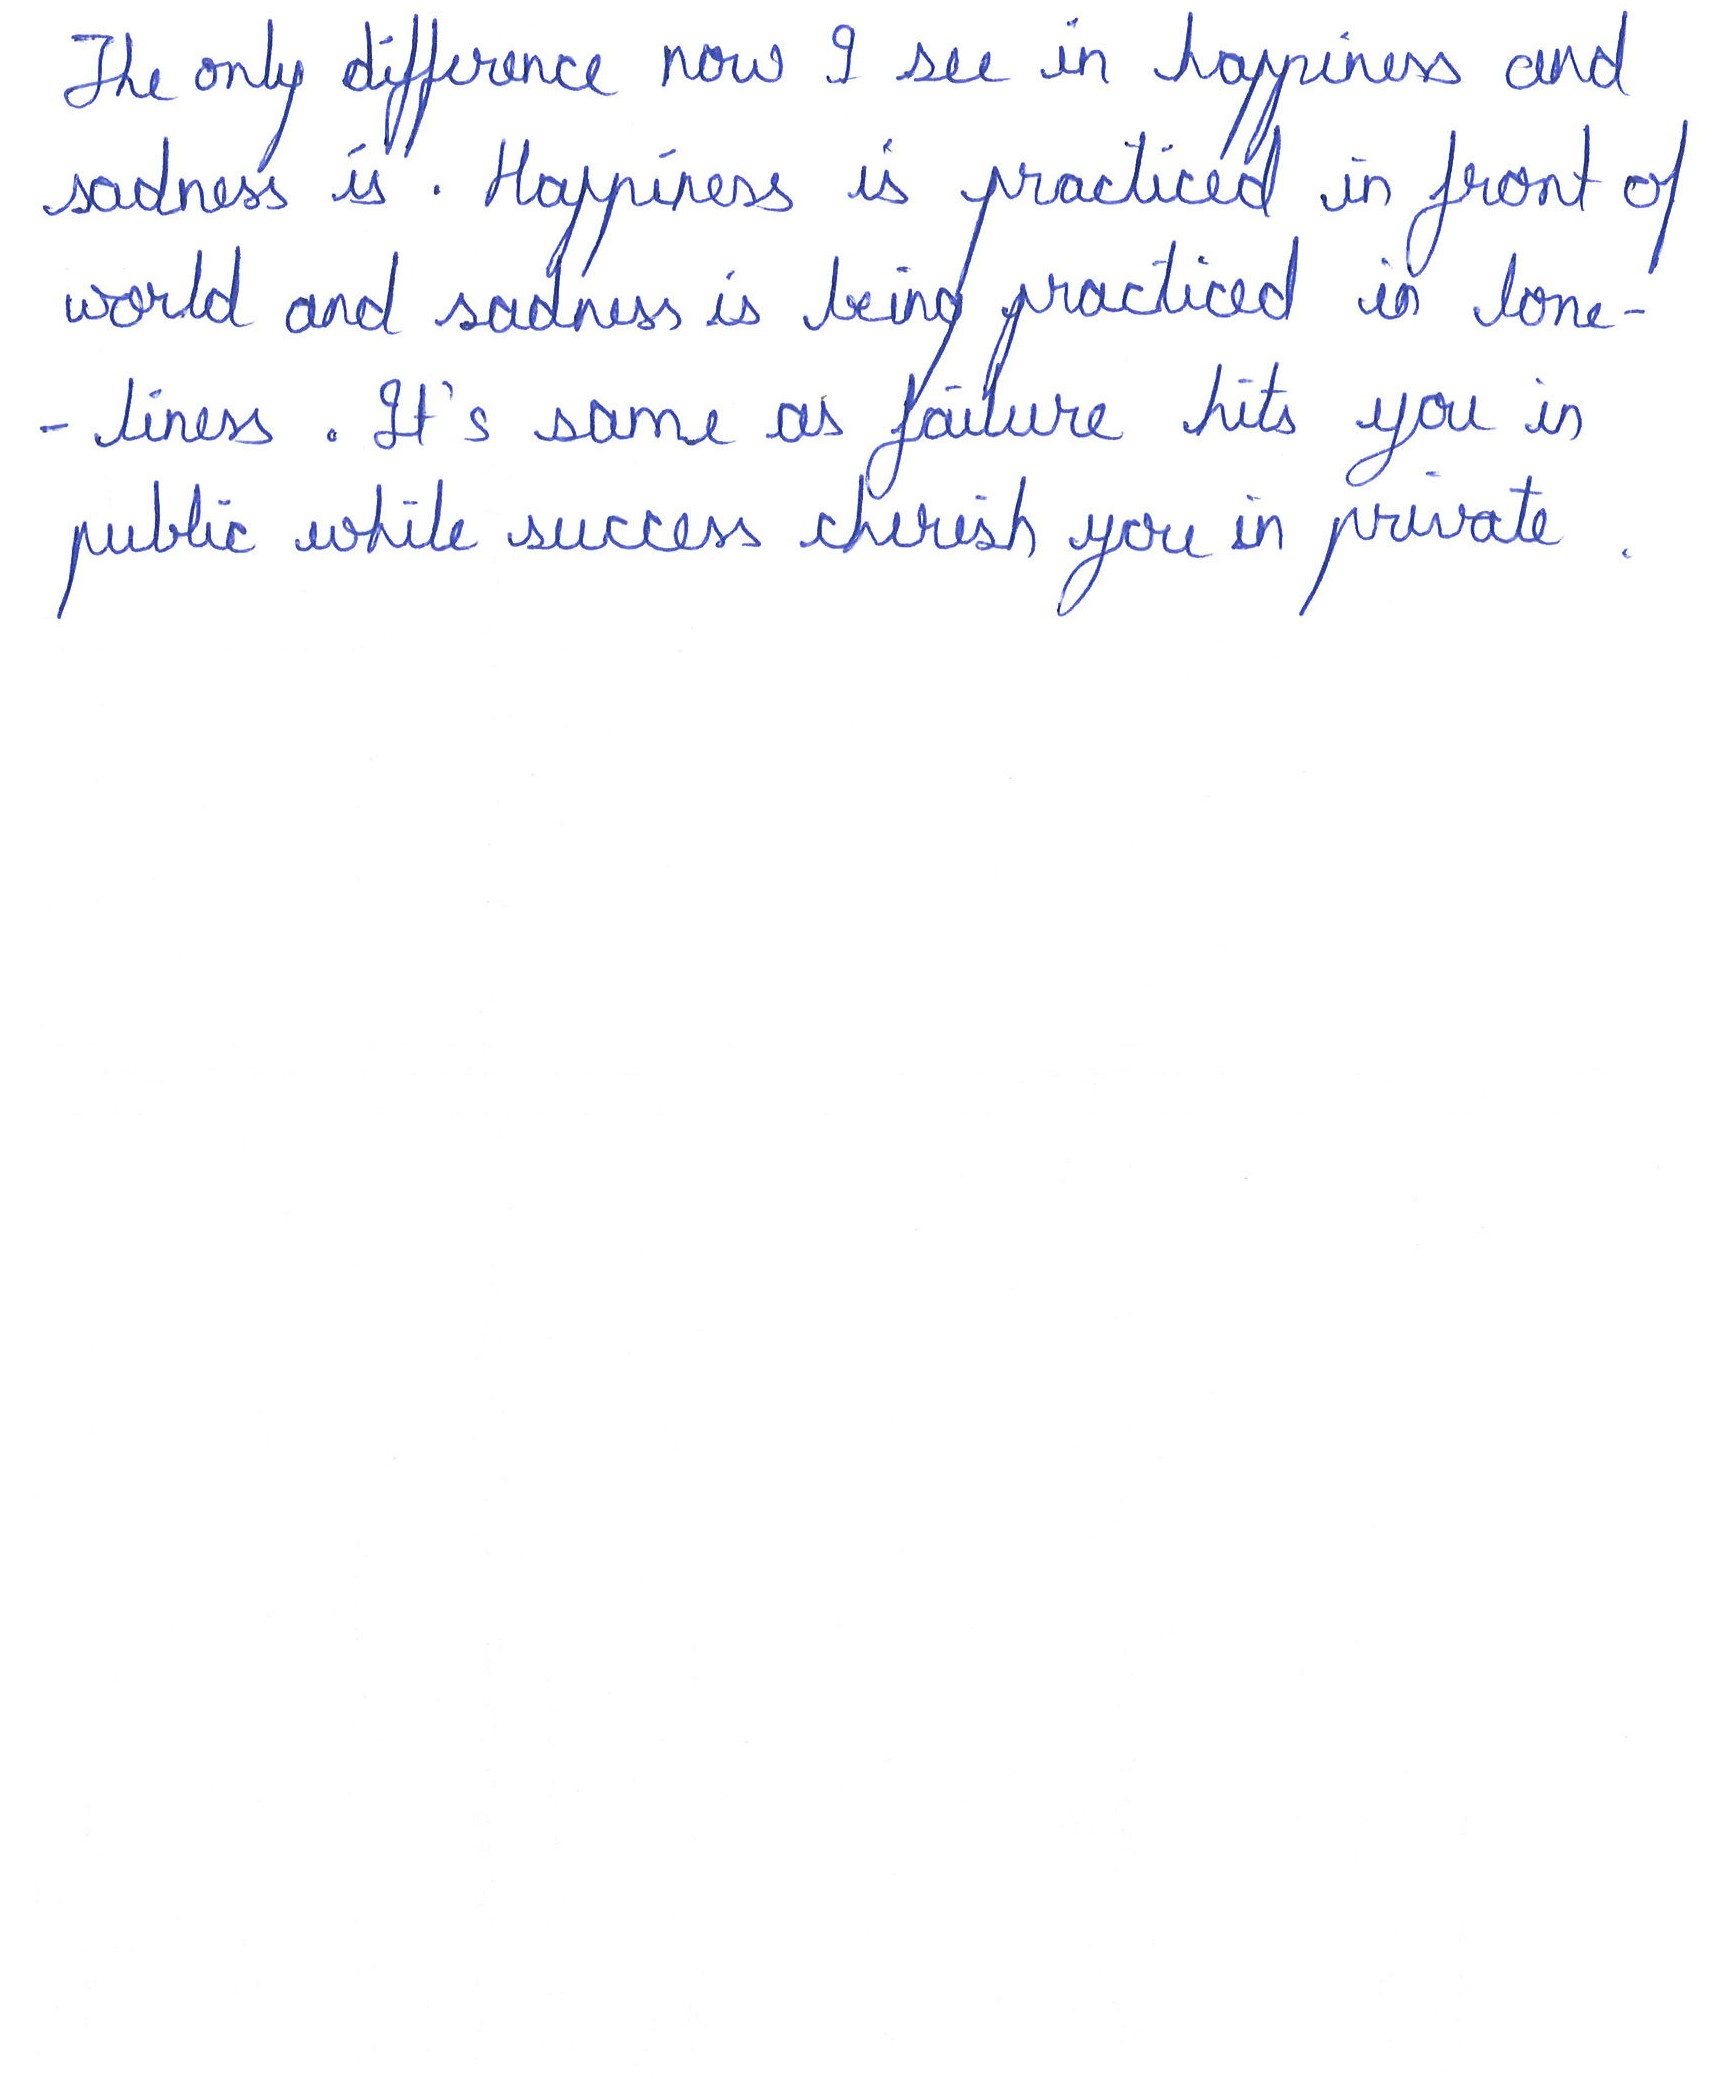 The only difference now I see in happiness and
sadness is . Happiness is practiced in front of
world and sadness is being practiced in lone-
- liness . It's same as failure hits you in
public while success cherish you in private .